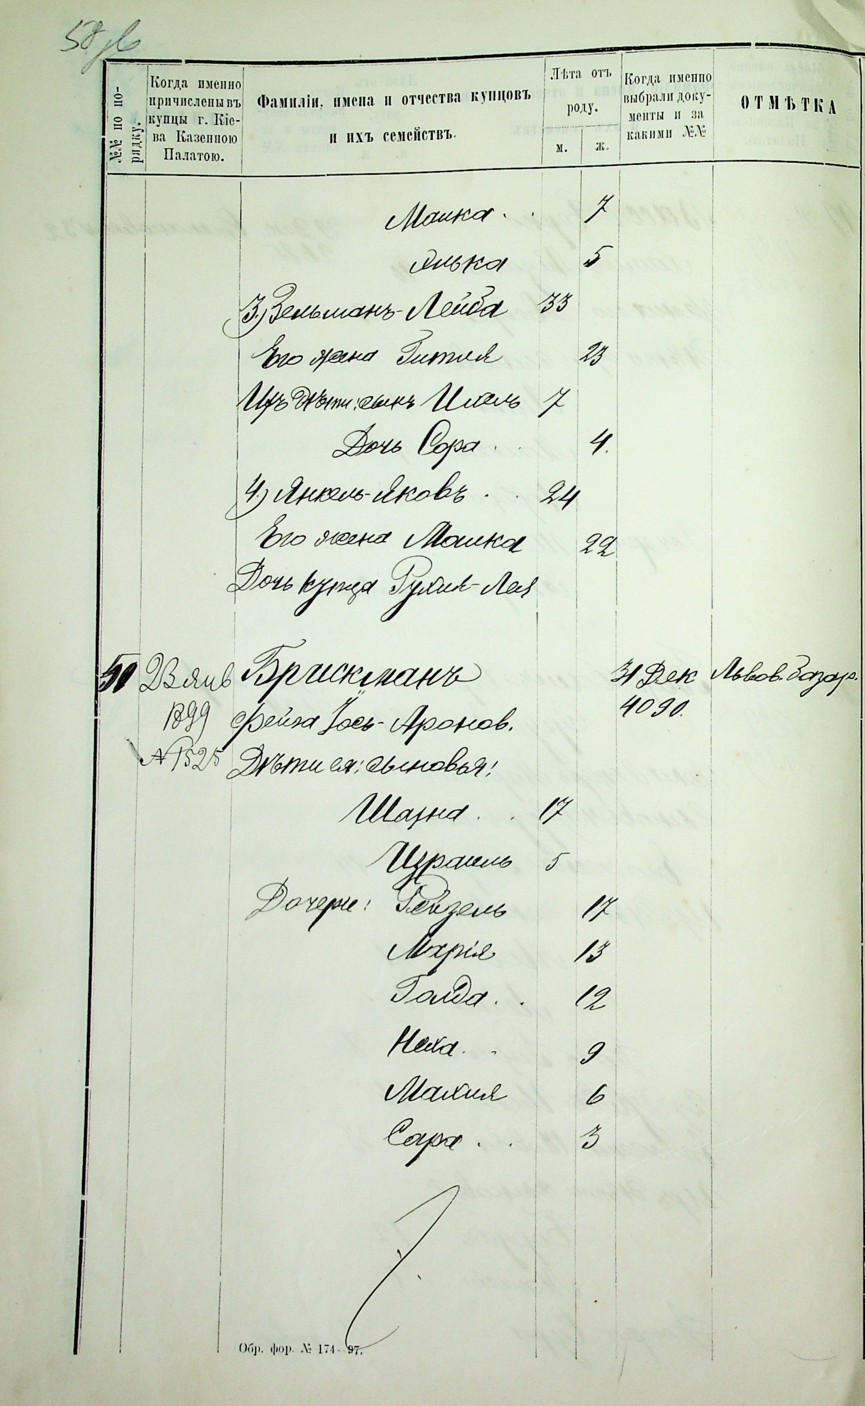 58
№№ по по-
рядку.
Когда именно
причислены въ
купцы г. Кіе-
ва Казенною
Палатою.
Фамиліи, имена и отчества купцовъ
и ихъ семействъ.
Лѣта отъ
роду.
м. ж.
Когда именно
выбрали доку-
менты и за
какими №№
ОТМѢТКА
Малка . . 7
5
3) Зельманъ-Лейба 33
Его жена Гитля 23
Ихъ дѣти: сынъ 7
Дочь Сора . . 4.
4) Янкель-Яковъ . . 24
Его жена Малка 22
Дочь купца Рухля-Лея
50 23 янв Брискманъ 31 Дек Львов. базар.
1899 Фейга Іось-Аронов. 4090.
№ 1525 Дѣти ея: сыновья:
Шахна . . 17
Израиль 5
Дочери: Рейзель 17
Марія 13
Голда . . 12
Неха . . 9
Малия 6
Сара . . 3
Обр. фор. № 174—97.